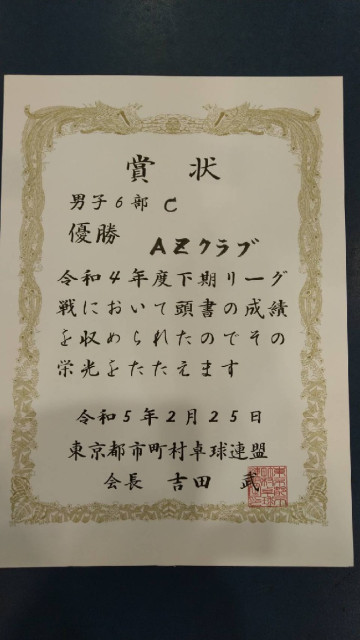 賞状
男子6部 C
優勝
AZクラブ
令和4年度下期リーグ
戦において頭書の成績
を収められたのでその
栄光をたたえます
令和5年2月25日
東京都市町村卓球連盟
会長 吉田 武